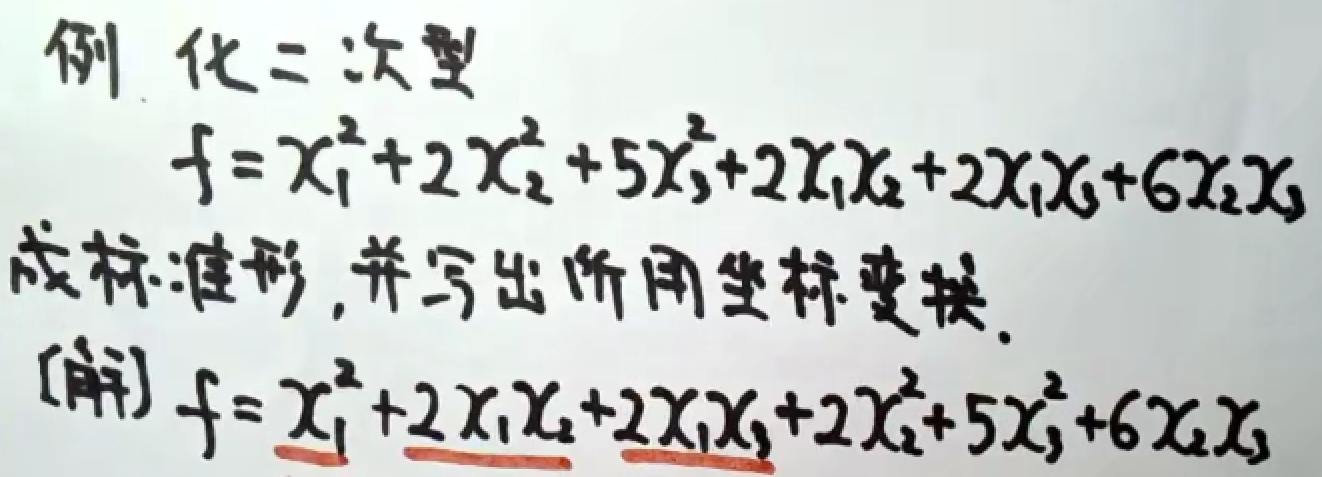 例 化二次型
f=x₁²+2x₂²+5x₃²+2x₁x₂+2x₁x₃+6x₂x₃
成标准形,并写出所用坐标变换.
[解] f=x₁²+2x₁x₂+2x₁x₃+2x₂²+5x₃²+6x₂x₃